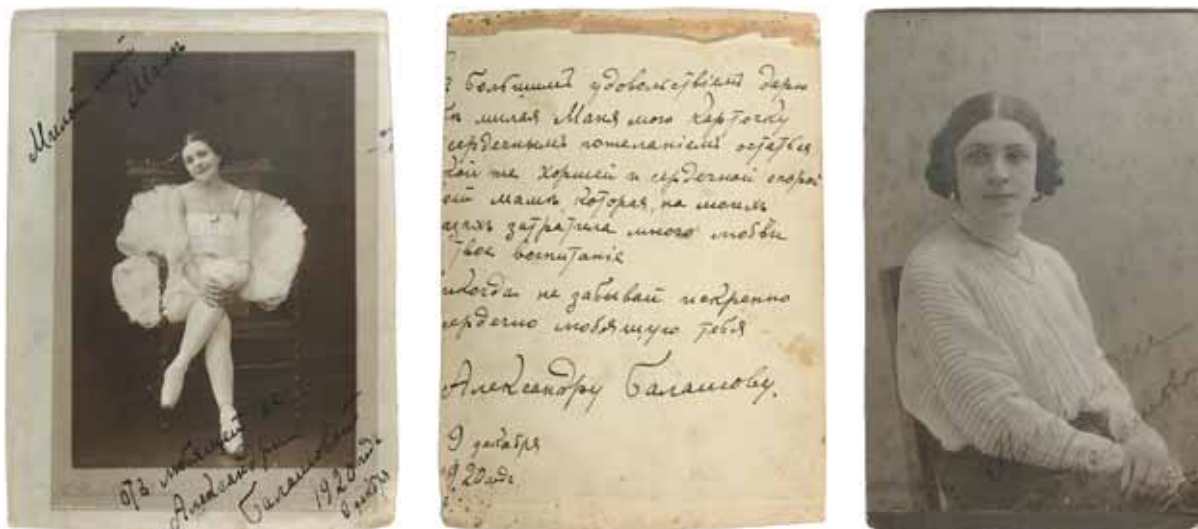 Милой моей
Мане
отъ любящей ее
Александры
Балашовой
1920 годъ
9 декабря
Большимъ удовольствіемъ дарю
милая Маня мою карточку
сердечнымъ пожеланіемъ остаться
же хорошей и сердечной опорой
мамѣ которая, на моихъ
затратила много любви
твое воспитаніе
никогда не забывай искренно
сердечно любящую тебя
Александру Балашову.
9 декабря
920 годъ